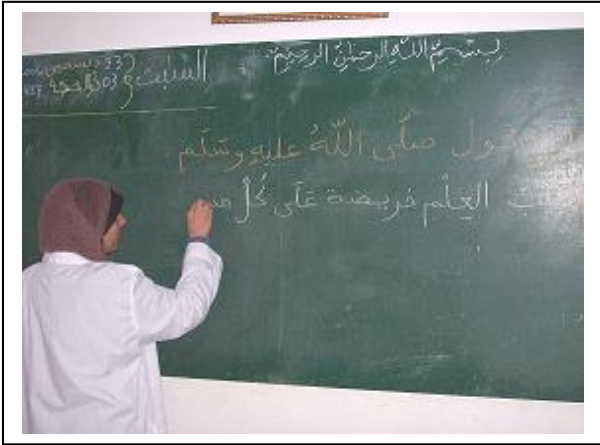 بِسْمِ اللهِ الرحمٰنِ الرحيمِ
السبت
23 ديسمبر
03 ذو الحجة
صلّى اللّهُ عليه وسَلّم
العِلْم فريضة عَلَى كُلِّ